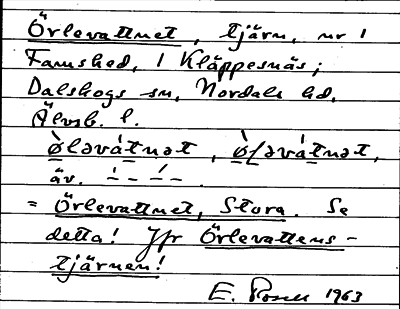 Örlevattnet, tjärn, nr 1
Famshed, 1 Kläppesnäs;
Dalskogs sn, Nordals hd,
Älvsb. l.
ø̀ləvátnət, ø̀ɭəvátnət,
äv. –́ – –́ –.
= Örlevattnet, Stora. Se
detta! Jfr Örlevattens-
tjärnen!
E. 1963